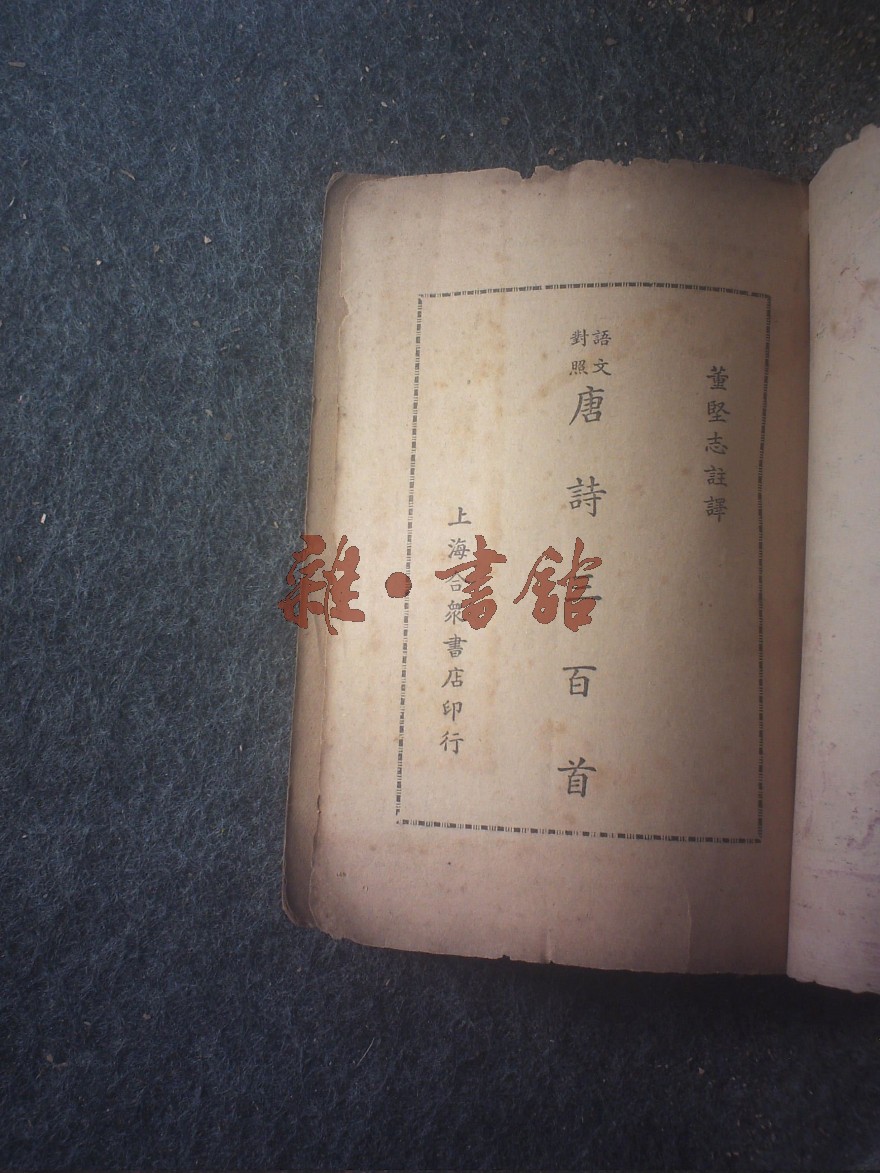 董堅志註譯
語文
對照
唐詩三百首
上海合衆書店印行
雜·書舘